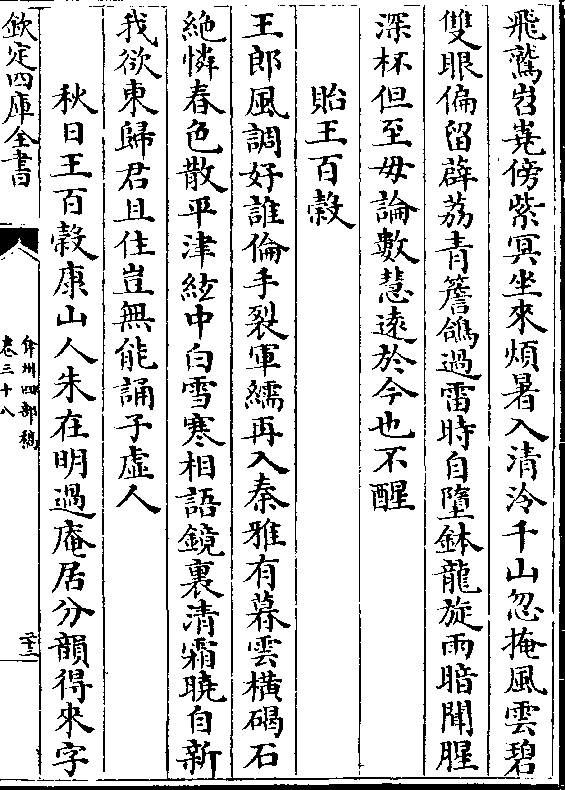 飛鷲岧嶤傍紫冥坐來煩暑入清泠千山忽掩風雲碧
雙眼偏留薜荔青簷鴿過雷時自墮鉢龍旋雨暗聞腥
深杯但至毋論數慧遠於今也不醒
貽王百榖
王郎風調好誰倫手裂軍繻再入秦雅有暮雲橫碣石
絶憐春色散平津絃中白雪寒相語鏡裏清霜曉自新
我欲東歸君且住豈無能誦子虚人
秋日王百榖康山人朱在明過庵居分韻得來字
欽定四庫全書
弇州四部稿
卷三十八